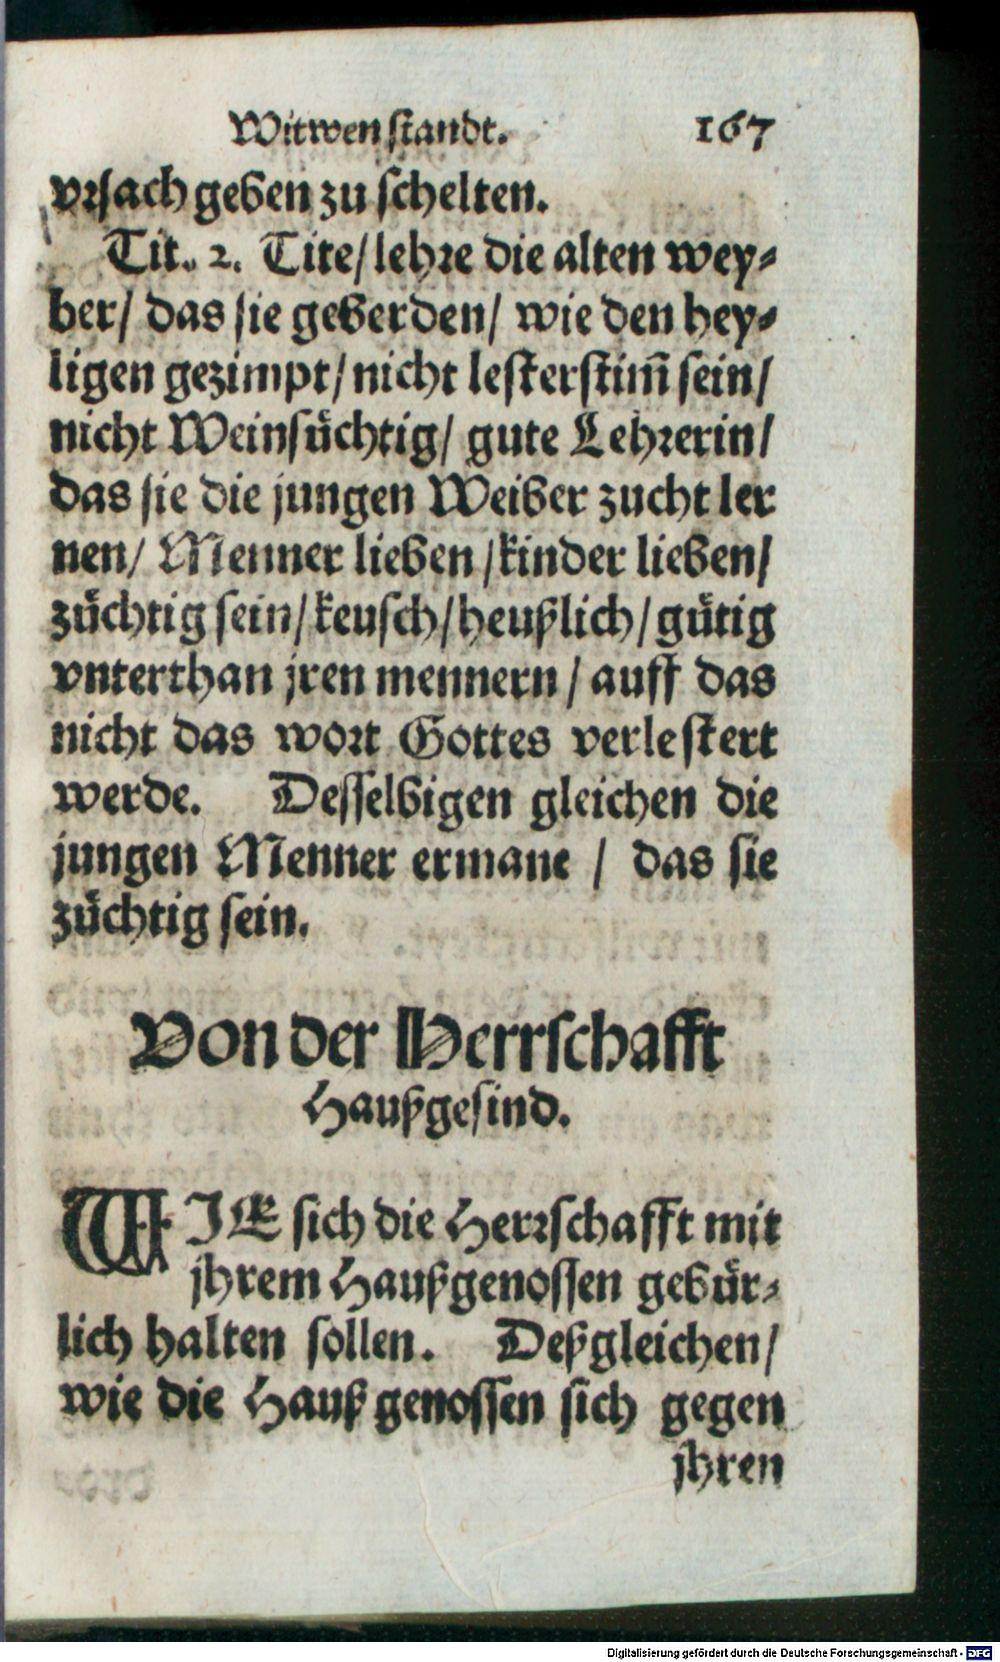 Witwen ſtandt. 167
vrſach geben zu ſchelten.
Tit. 2. Tite/ lehre die alten wey-
ber/ das ſie geberden/ wie den hey-
ligen gezimpt/ nicht leſterſtim̃ ſein/
nicht Weinſuͤchtig/ gute Lehrerin/
das ſie die jungen Weiber zucht ler
nen/ Menner lieben / kinder lieben/
zuͤchtig ſein/ keuſch/ heußlich/ guͤtig
vnterthan jren mennern / auff das
nicht das wort Gottes verleſtert
werde. Deſſelbigen gleichen die
jungen Menner ermane / das ſie
zuͤchtig ſein.
Von der Herrſchafft
Haußgeſind.
WIE ſich die Herrſchafft mit
jhrem Haußgenoſſen gebuͤr-
lich halten ſollen. Deßgleichen/
wie die Hauß genoſſen ſich gegen
jhren
Digitalisierung gefördert durch die Deutsche Forschungsgemeinschaft - DFG